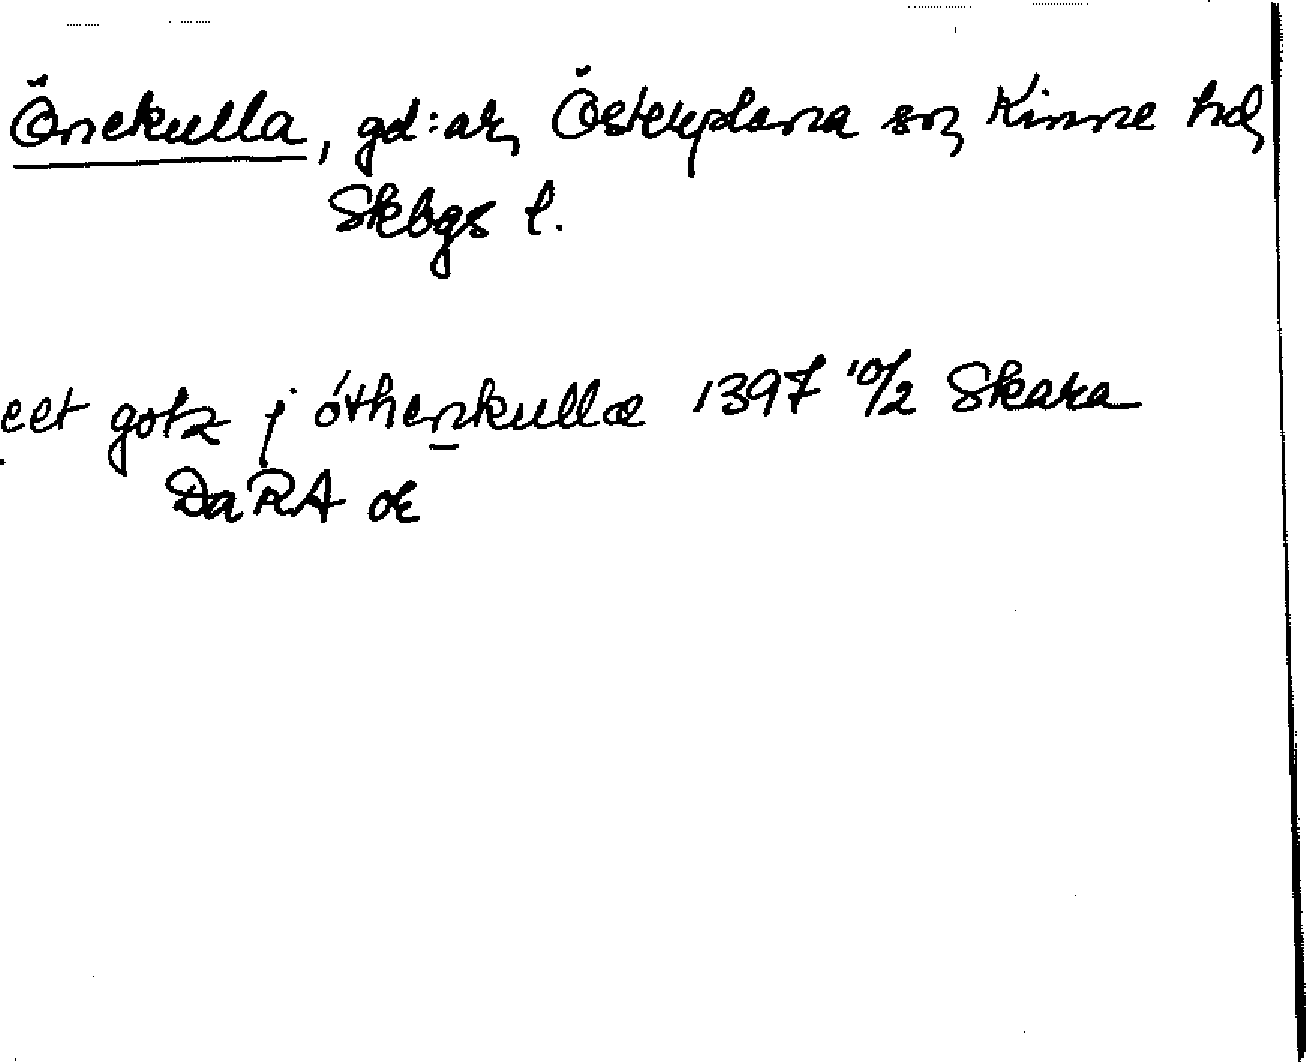 Önekulla, gd:ar, Österplana sn, Kinne hd,
Skbgs l.
eet gotz j óthenkullæ 1397 10/2 Skara
DaRA or